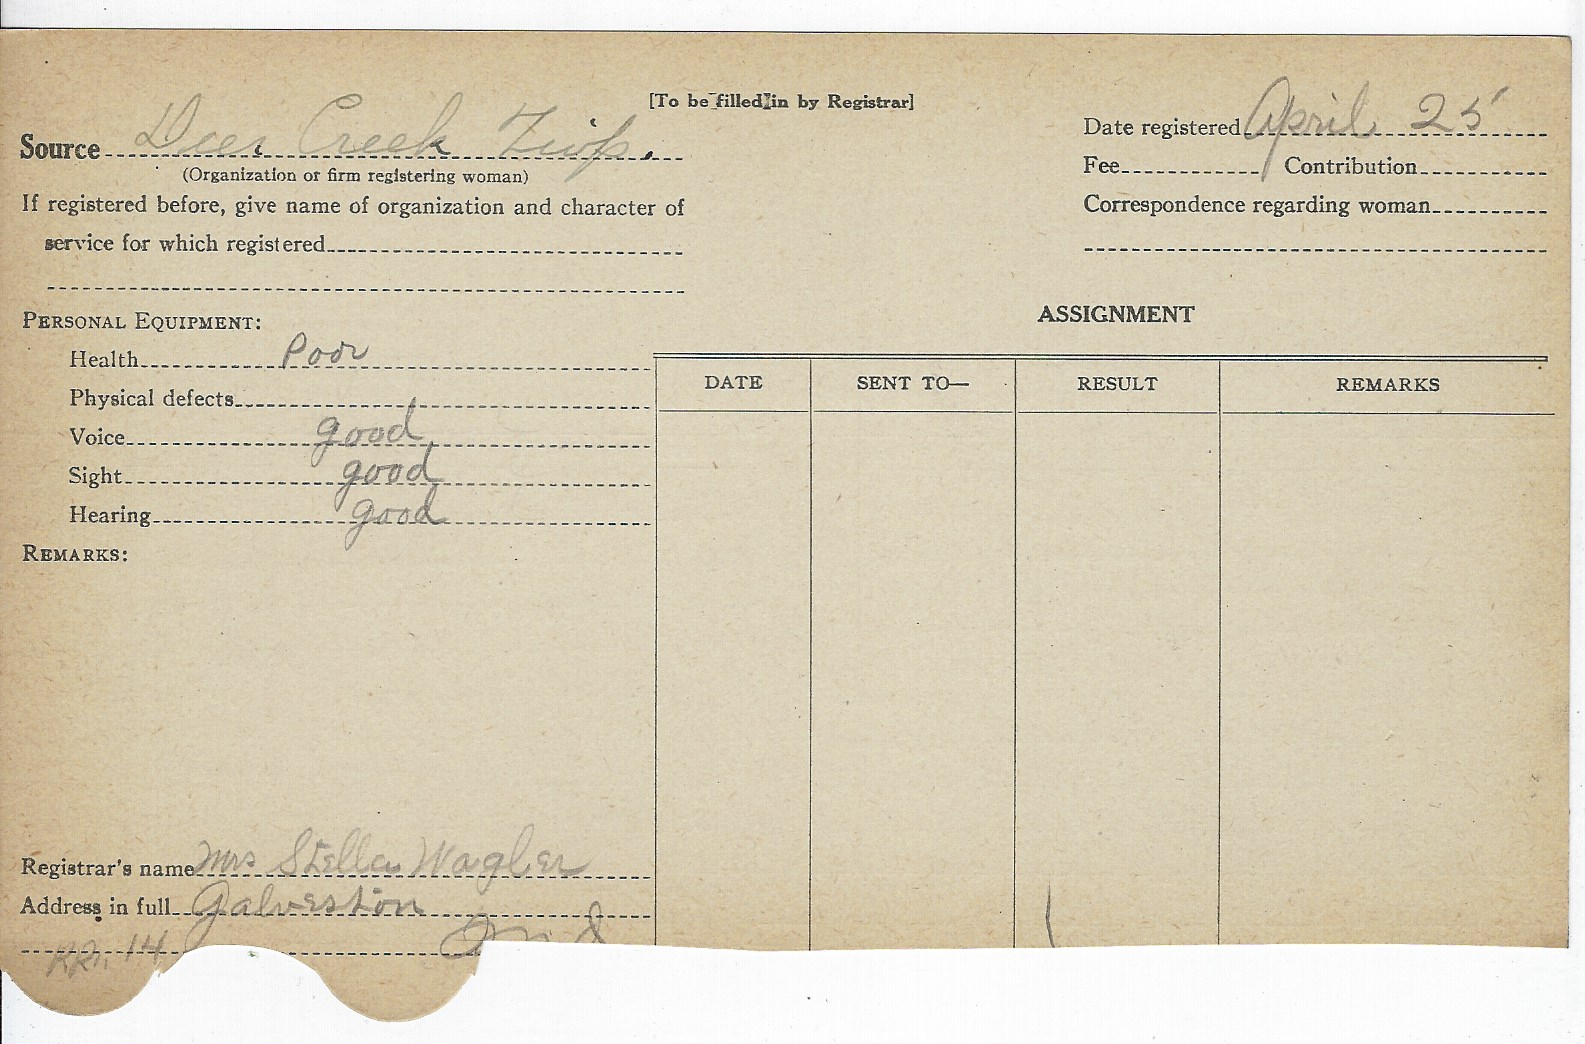 [To be filled in by Registrar]
Source Deer Creek Twp.
(Organization or firm registering woman)
Date registered April 25
Fee Contribution
If registered before, give name of organization and character of
service for which registered
Correspondence regarding woman
PERSONAL EQUIPMENT:
Health Poor
Physical defects
Voice good
Sight good
Hearing good
REMARKS:
ASSIGNMENT
DATE SENT TO— RESULT REMARKS
Registrar's name Mrs Stella Wagler
Address in full Galveston
RR. 14 Ind